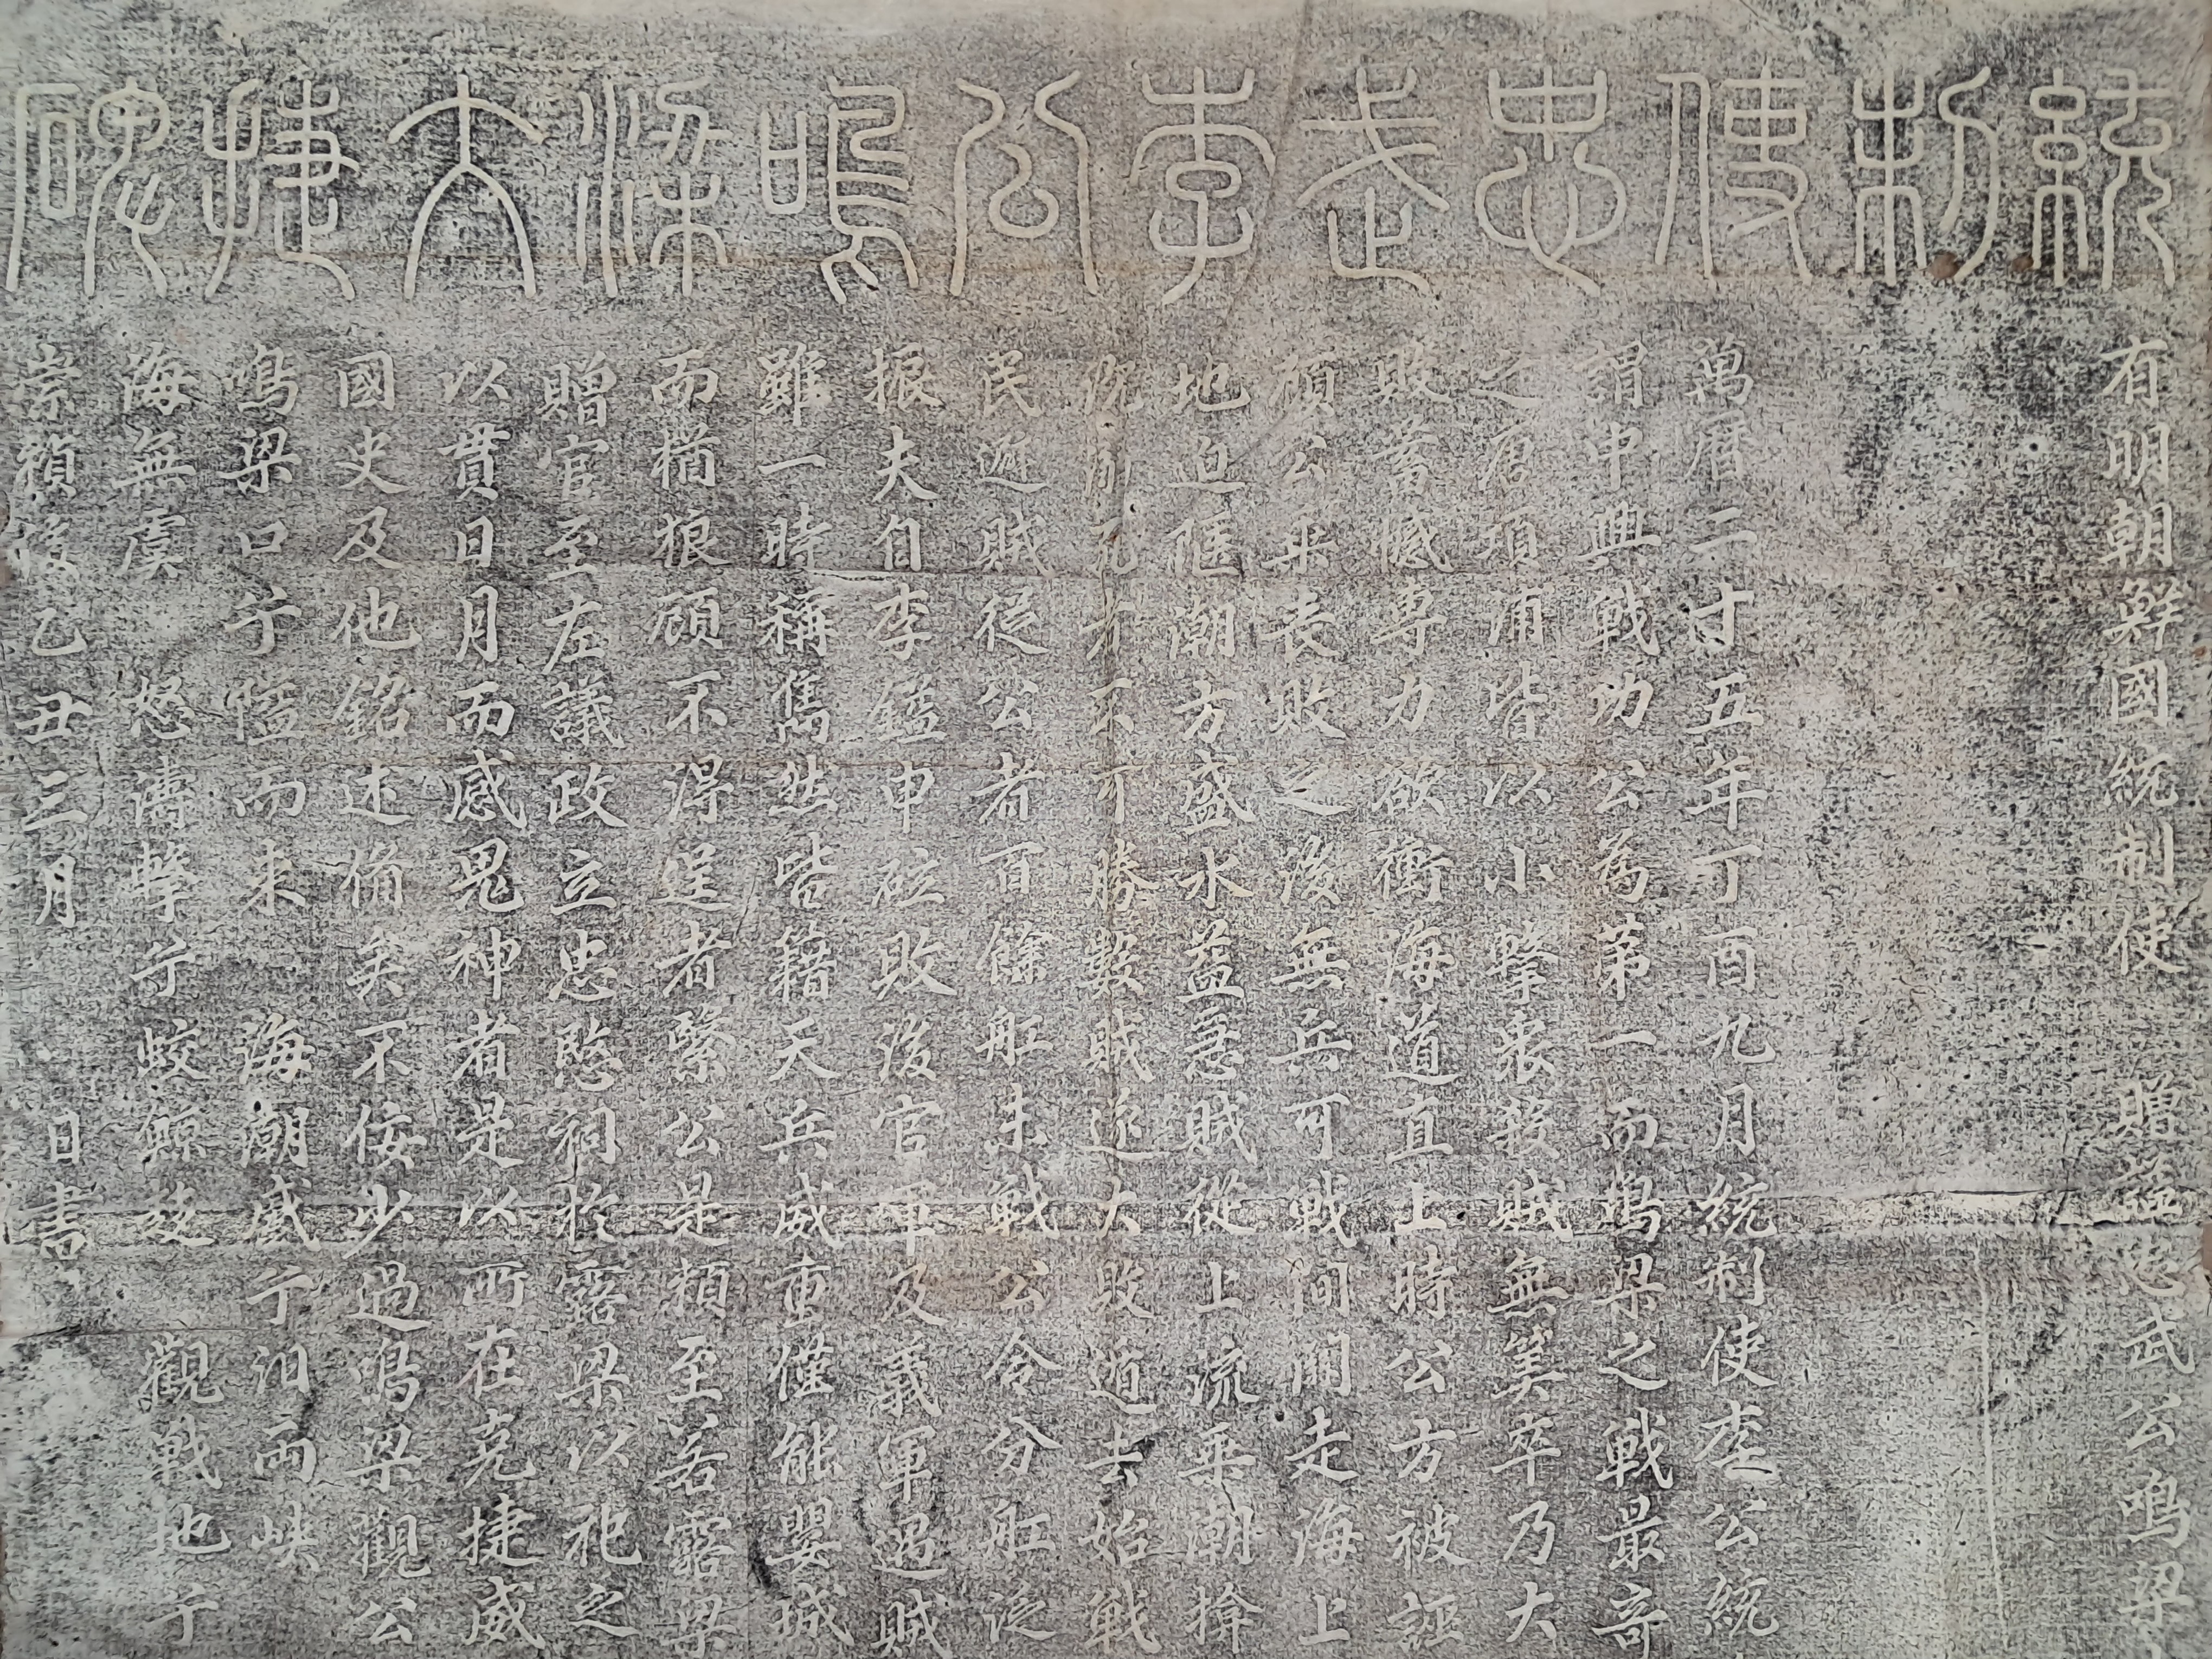 統制使忠武李公鳴梁大捷碑
有明朝鮮國統制使 贈諡忠武公鳴梁
萬曆二十五年丁酉九月統制使李公統
謂中興戰功公為第一而鳴梁之戰最奇
之唐項浦皆以小擊衆殺賊無筭卒乃大
敗蓄憾專力欲衝海道直上時公方被誣
領公乗喪敗之後無兵可戰間關走海上
地迫隘潮方盛水益急賊從上流乗潮揜
既而死者不可勝數賊遂大敗遁去始戰
民避賊從公者百餘舡未戰公令分舡泛
振夫自李鎰申砬敗後官軍及義軍遇賊
雖一時稱雋然皆籍天兵威重僅能嬰城
而猶狼顧不得逞者繄公是賴至若露梁
贈官至左議政立忠愍祠於露梁以祀之
以貫日月而感鬼神者是以所在克捷威
國史及他銘述備矣不佞少過鳴梁觀公
鳴梁口兮隘而束 海潮盛兮汨兩峽
海無虞 怒濤擊兮 蛟鯨 觀戰地兮
崇禎後乙丑三月 日書